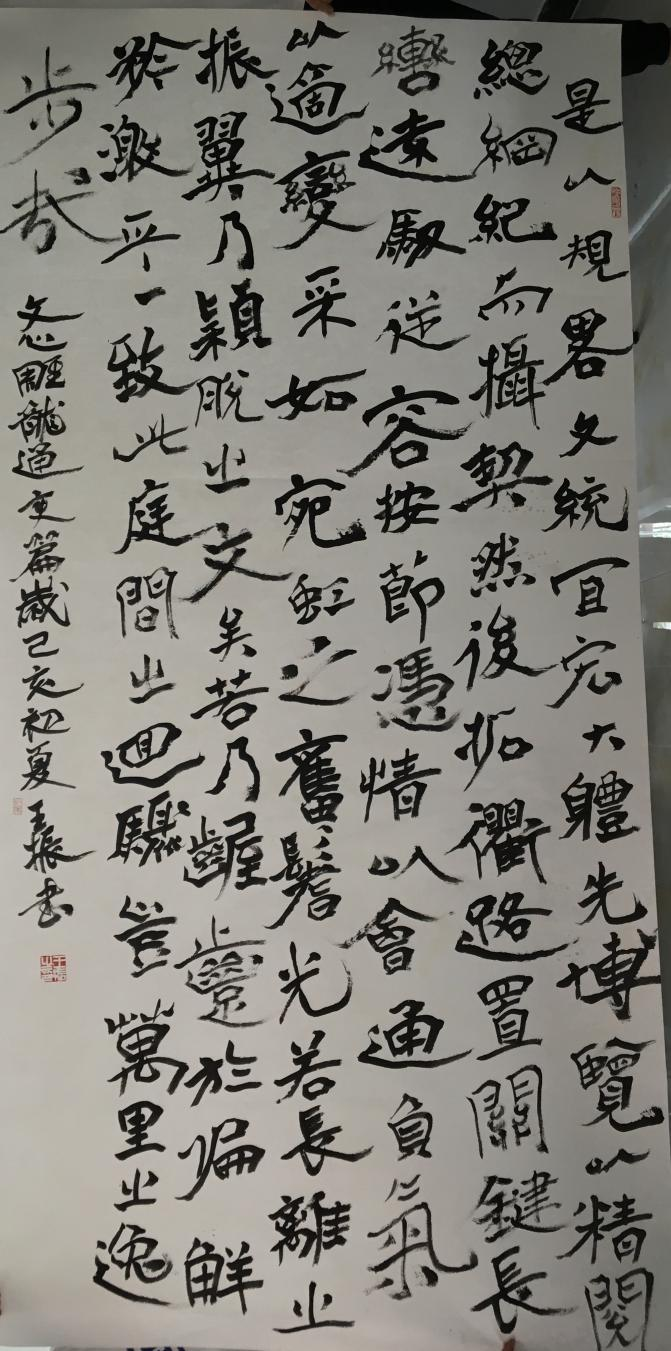 是以規畧文統宜宏大體先博覽以精閱
總綱紀而攝契然後拓衢路置關鍵長
轡遠馭從容按節憑情以會通負氣
以適變采如宛虹之奮鬐光若長離之
振翼乃穎脫之文矣若乃齷齪於偏解
矜激乎一致此庭間之迴驟豈萬里之逸
步哉
文心雕龍通変篇歲己亥初夏王振书